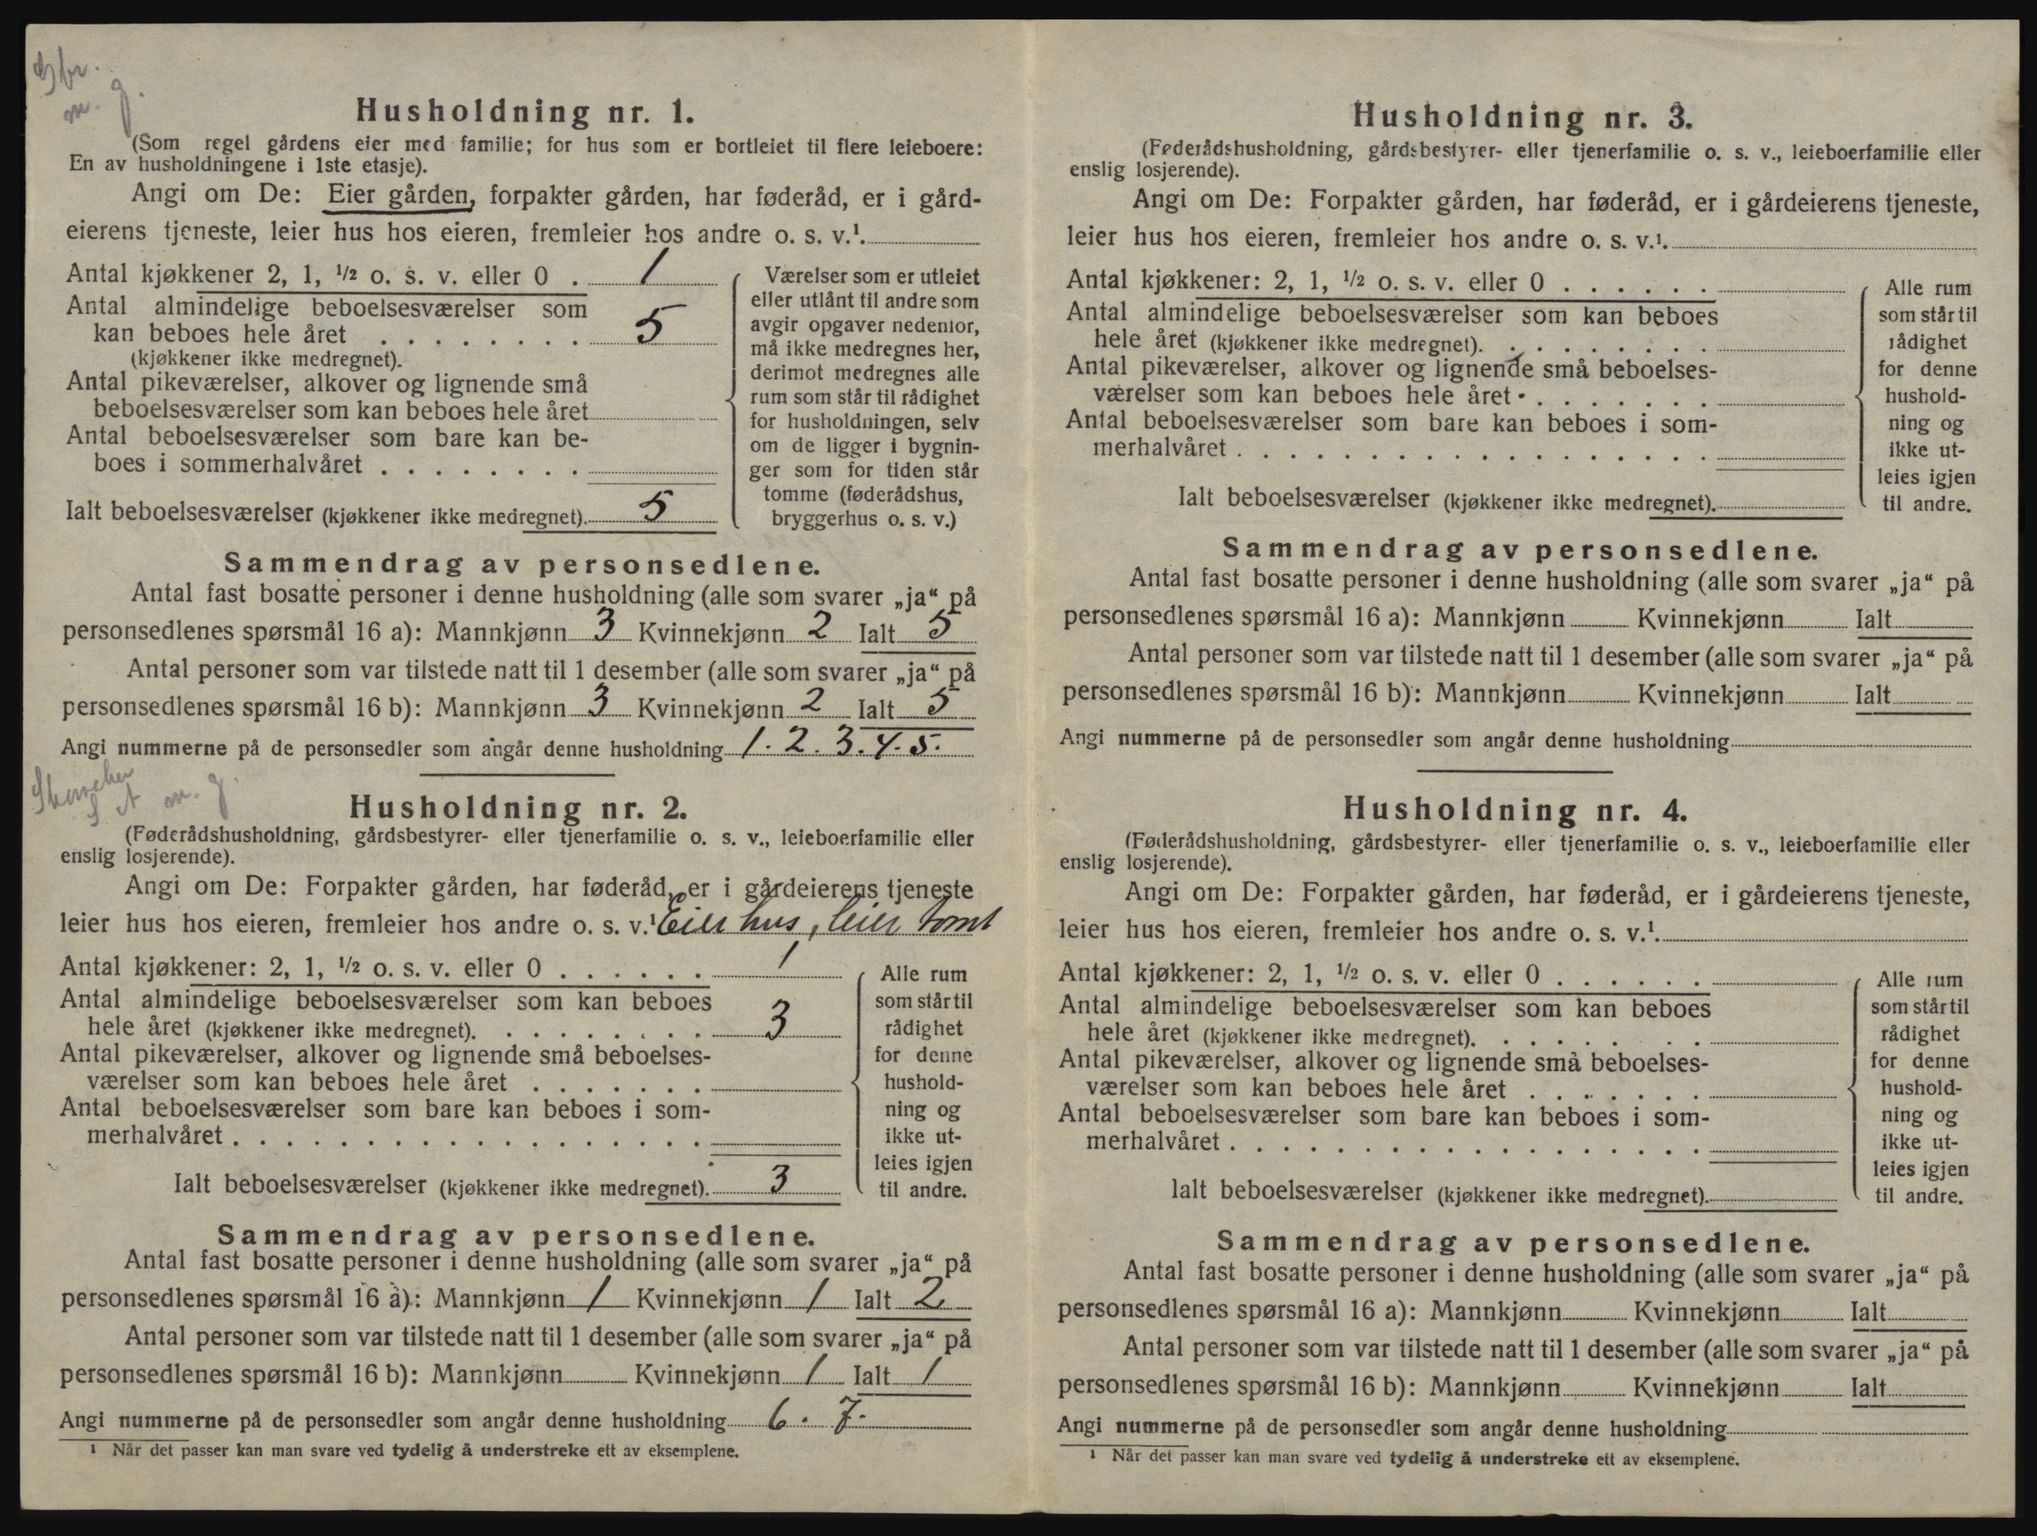 Gbr.
m. g.
Husholdning nr. 1.
(Som regel gårdens eier med familie; for hus som er bortleiet til flere leieboere:
En av husholdningene i 1ste etasje).
Angi om De: Eier gården, forpakter gården, har føderåd, er i gård-
eierens tjeneste, leier hus hos eieren, fremleier hos andre o. s. v.¹.
Antal kjøkkener 2, 1, ½ o. s. v. eller 0 . 1
Antal almindelige beboelsesværelser som
kan beboes hele året . . . . . . . . 5
(kjøkkener ikke medregnet).
Antal pikeværelser, alkover og lignende små
beboelsesværelser som kan beboes hele året
Antal beboelsesværelser som bare kan be-
boes i sommerhalvåret . . . . . . . .
Ialt beboelsesværelser (kjøkkener ikke medregnet). 5
Værelser som er utleiet
eller utlånt til andre som
avgir opgaver nedenfor,
må ikke medregnes her,
derimot medregnes alle
rum som står til rådighet
for husholdningen, selv
om de ligger i bygnin-
ger som for tiden står
tomme (føderådshus,
bryggerhus o. s. v.)
Sammendrag av personsedlene.
Antal fast bosatte personer i denne husholdning (alle som svarer „ja“ på
personsedlenes spørsmål 16 a): Mannkjønn 3 Kvinnekjønn 2 Ialt 5
Antal personer som var tilstede natt til 1 desember (alle som svarer „ja“ på
personsedlenes spørsmål 16 b): Mannkjønn 3 Kvinnekjønn 2 Ialt 5
Angi nummerne på de personsedler som angår denne husholdning 1. 2. 3. 4. 5.
m. g.
Husholdning nr. 2.
(Føderådshusholdning, gårdsbestyrer- eller tjenerfamilie o. s. v., leieboerfamilie eller
enslig losjerende).
Angi om De: Forpakter gården, har føderåd, er i gårdeierens tjeneste
leier hus hos eieren, fremleier hos andre o. s. v.¹ Eier hus, leier tomt
Antal kjøkkener: 2, 1, ½ o. s. v. eller 0 . . . . . . 1
Antal almindelige beboelsesværelser som kan beboes
hele året (kjøkkener ikke medregnet). . . . . . . . . 3
Antal pikeværelser, alkover og lignende små beboelses-
værelser som kan beboes hele året . . . . . . .
Antal beboelsesværelser som bare kan beboes i som-
merhalvåret . . . . . . . . . . . . . . . . . .
Ialt beboelsesværelser (kjøkkener ikke medregnet). 3
Alle rum
som står til
rådighet
for denne
hushold-
ning og
ikke ut-
leies igjen
til andre.
Sammendrag av personsedlene.
Antal fast bosatte personer i denne husholdning (alle som svarer „ja“ på
personsedlenes spørsmål 16 a): Mannkjønn 1 Kvinnekjønn 1 Ialt 2
Antal personer som var tilstede natt til 1 desember (alle som svarer „ja“ på
personsedlenes spørsmål 16 b): Mannkjønn Kvinnekjønn 1 Ialt 1
Angi nummerne på de personsedler som angår denne husholdning 6. 7.
¹ Når det passer kan man svare ved tydelig å understreke ett av eksemplene.
Husholdning nr. 3.
(Føderådshusholdning, gårdsbestyrer- eller tjenerfamilie o. s. v., leieboerfamilie eller
enslig losjerende).
Angi om De: Forpakter gården, har føderåd, er i gårdeierens tjeneste,
leier hus hos eieren, fremleier hos andre o. s. v.¹.
Antal kjøkkener: 2, 1, ½ o. s. v. eller 0 . . . . . .
Antal almindelige beboelsesværelser som kan beboes
hele året (kjøkkener ikke medregnet). . . . . . . . .
Antal pikeværelser, alkover og lignende små beboelses-
værelser som kan beboes hele året . . . . . . . .
Antal beboelsesværelser som bare kan beboes i som-
merhalvåret . . . . . . . . . . . . . . . . . .
Ialt beboelsesværelser (kjøkkener ikke medregnet).
Alle rum
som står til
rådighet
for denne
hushold-
ning og
ikke ut-
leies igjen
til andre.
Sammendrag av personsedlene.
Antal fast bosatte personer i denne husholdning (alle som svarer „ja“ på
personsedlenes spørsmål 16 a): Mannkjønn Kvinnekjønn Ialt
Antal personer som var tilstede natt til 1 desember (alle som svarer „ja“ på
personsedlenes spørsmål 16 b): Mannkjønn Kvinnekjønn Ialt
Angi nummerne på de personsedler som angår denne husholdning
Husholdning nr. 4.
(Føderådshusholdning, gårdsbestyrer- eller tjenerfamilie o. s. v., leieboerfamilie eller
enslig losjerende).
Angi om De: Forpakter gården, har føderåd, er i gårdeierens tjeneste,
leier hus hos eieren, fremleier hos andre o. s. v.¹.
Antal kjøkkener: 2, 1, ½ o. s. v. eller 0 . . . . . .
Antal almindelige beboelsesværelser som kan beboes
hele året (kjøkkener ikke medregnet). . . . . . . .
Antal pikeværelser, alkover og lignende små beboelses-
værelser som kan beboes hele året . . . . . . .
Antal beboelsesværelser som bare kan beboes i som-
merhalvåret . . . . . . . . . . . . . . . . . .
Ialt beboelsesværelser (kjøkkener ikke medregnet).
Alle rum
som står til
rådighet
for denne
hushold-
ning og
ikke ut-
leies igjen
til andre.
Sammendrag av personsedlene.
Antal fast bosatte personer i denne husholdning (alle som svarer „ja“ på
personsedlenes spørsmål 16 a): Mannkjønn Kvinnekjønn Ialt
Antal personer som var tilstede natt til 1 desember (alle som svarer „ja“ på
personsedlenes spørsmål 16 b): Mannkjønn Kvinnekjønn Ialt
Angi nummerne på de personsedler som angår denne husholdning
¹ Når det passer kan man svare ved tydelig å understreke ett av eksemplene.